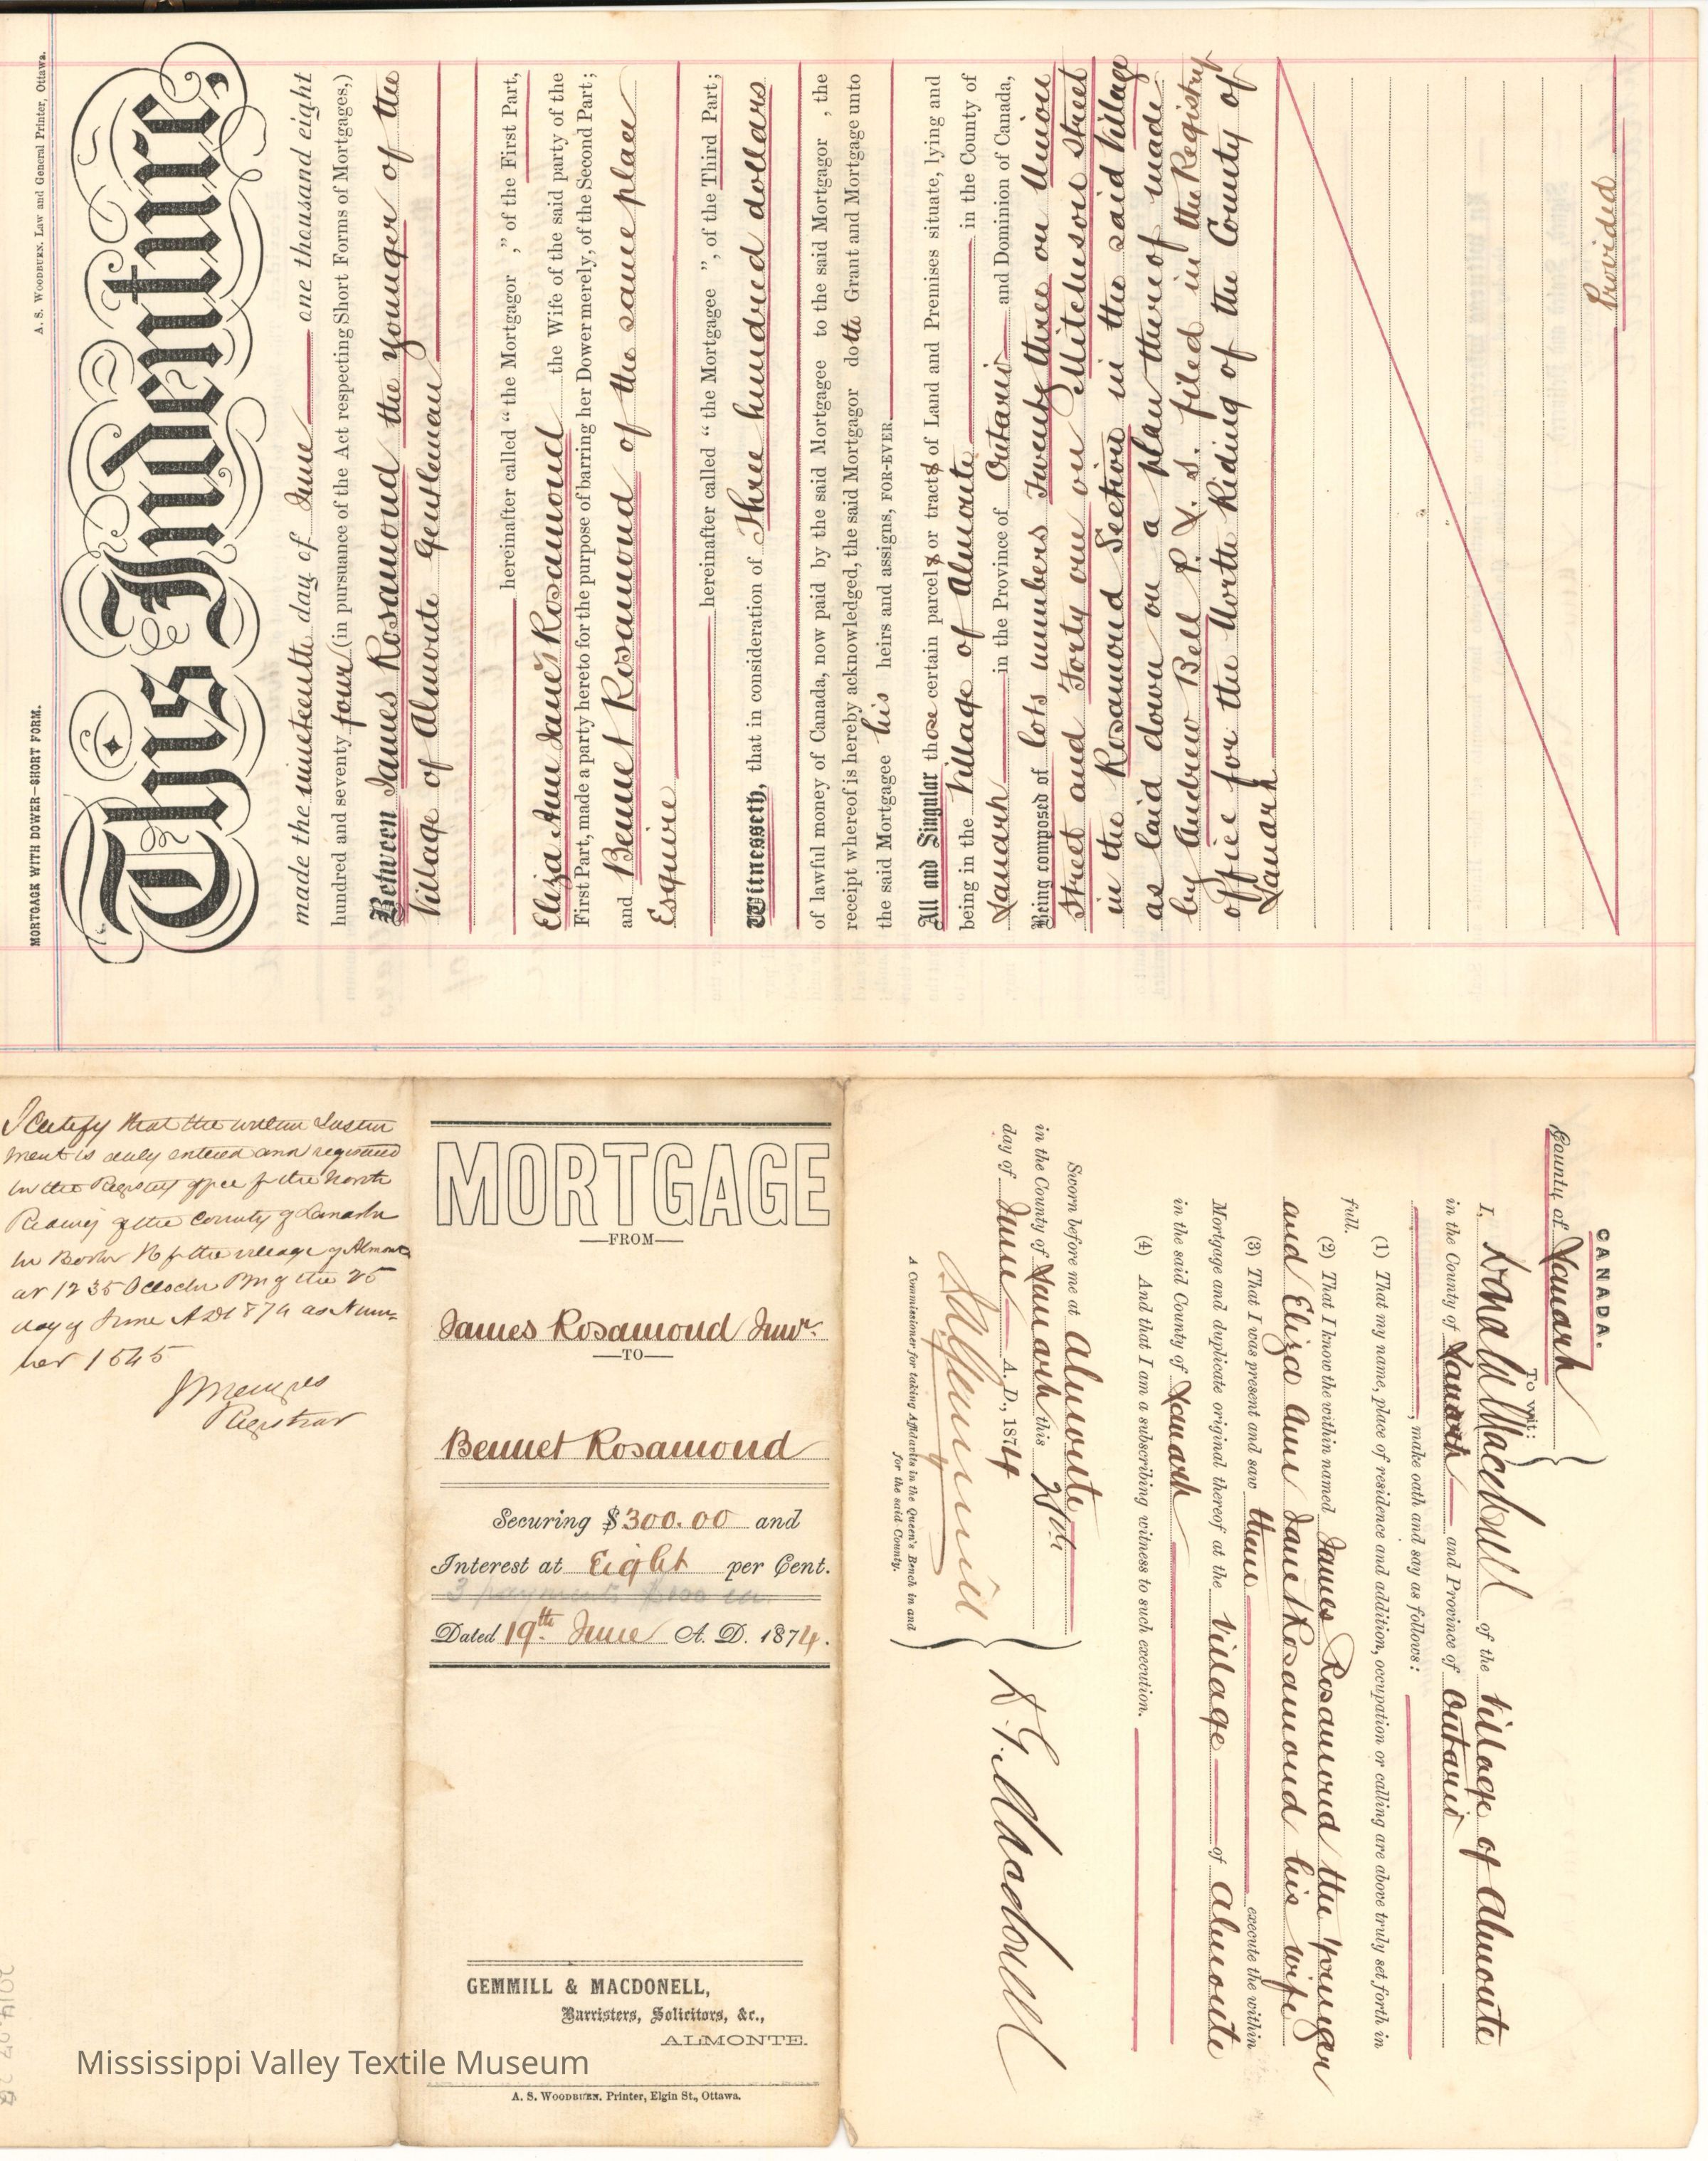 MORTGAGE WITH DOWER—SHORT FORM.
A. S. WOODBURN, Law and General Printer, Ottawa.
This Indenture,
made the nineteenth day of June one thousand eight
hundred and seventy four (in pursuance of the Act respecting Short Forms of Mortgages,)
Between James Rosamond the younger of the
Village of Almonte Gentleman
hereinafter called “ the Mortgagor ,” of the First Part,
Eliza Ann Jane Rosamond the Wife of the said party of the
First Part, made a party hereto for the purpose of barring her Dower merely, of the Second Part ;
and Bennet Rosamond of the same place
Esquire
hereinafter called “ the Mortgagee ”, of the Third Part ;
Witnesseth, that in consideration of Three hundred dollars
of lawful money of Canada, now paid by the said Mortgagee to the said Mortgagor , the
receipt whereof is hereby acknowledged, the said Mortgagor doth Grant and Mortgage unto
the said Mortgagee his heirs and assigns, FOR-EVER.
All and Singular those certain parcels or tracts of Land and Premises situate, lying and
being in the Village of Almonte in the County of
Lanark in the Province of Ontario and Dominion of Canada,
Being composed of lots numbers Twenty three on Union
Street and Forty one on Mitcheson Street
in the Rosamond Section in the said Village
as laid down on a plan thereof made
by Andrew Bell P. L. S. filed in the Registry
office for the North Riding of the County of
Lanark
Provided
I Certify that the within Instru
ment is duly entered and registered
in the Registry office for the North
Riding of the County of Lanark
in Book B for the village of Almonte
at 12 35 Oclock PM of the 25
day of June AD 1874 as Num-
ber 1545
Registrar
MORTGAGE
—FROM—
James Rosamond Junr.
—TO—
Bennet Rosamond
Securing $300.00 and
Interest at Eight per Cent.
3 payments $100 ea.
Dated 19th June A. D. 1874.
GEMMILL & MACDONELL,
Barristers, Solicitors, &c.,
ALMONTE.
A. S. WOODBURN, Printer, Elgin St., Ottawa.
CANADA.
County of Lanark
To wit:
I, of the Village of Almonte
in the County of Lanark and Province of Ontario
, make oath and say as follows :
(1) That my name, place of residence and addition, occupation or calling are above truly set forth in
full.
(2) That I know the within named James Rosamond the younger
and Eliza Ann Jane Rosamond his wife
(3) That I was present and saw them execute the within
Mortgage and duplicate original thereof at the Village of Almonte
in the said County of Lanark
(4) And that I am a subscribing witness to such execution.
Sworn before me at Almonte
in the County of Lanark this
day of June A. D., 1874
A Commissioner for taking Affidavits in the Queen's Bench in and
for the said County.
Mississippi Valley Textile Museum